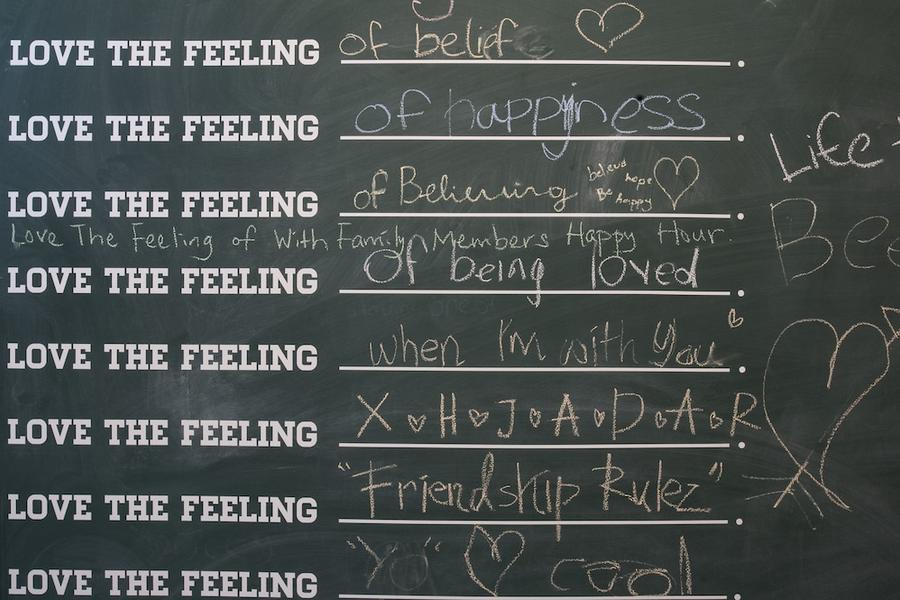 LOVE THE FEELING of belief ♡.
LOVE THE FEELING of happiness.
Life
LOVE THE FEELING of Believing believe hope Be happy ♡.
Love The Feeling of With Family Members Happy Hour.
Bee
LOVE THE FEELING Of being loved.
LOVE THE FEELING when I'm with You ♡.
LOVE THE FEELING X♡H♡J♡A♡D♡A♡R.
LOVE THE FEELING "Friendship Rulez".
LOVE THE FEELING "You" ♡ cool.